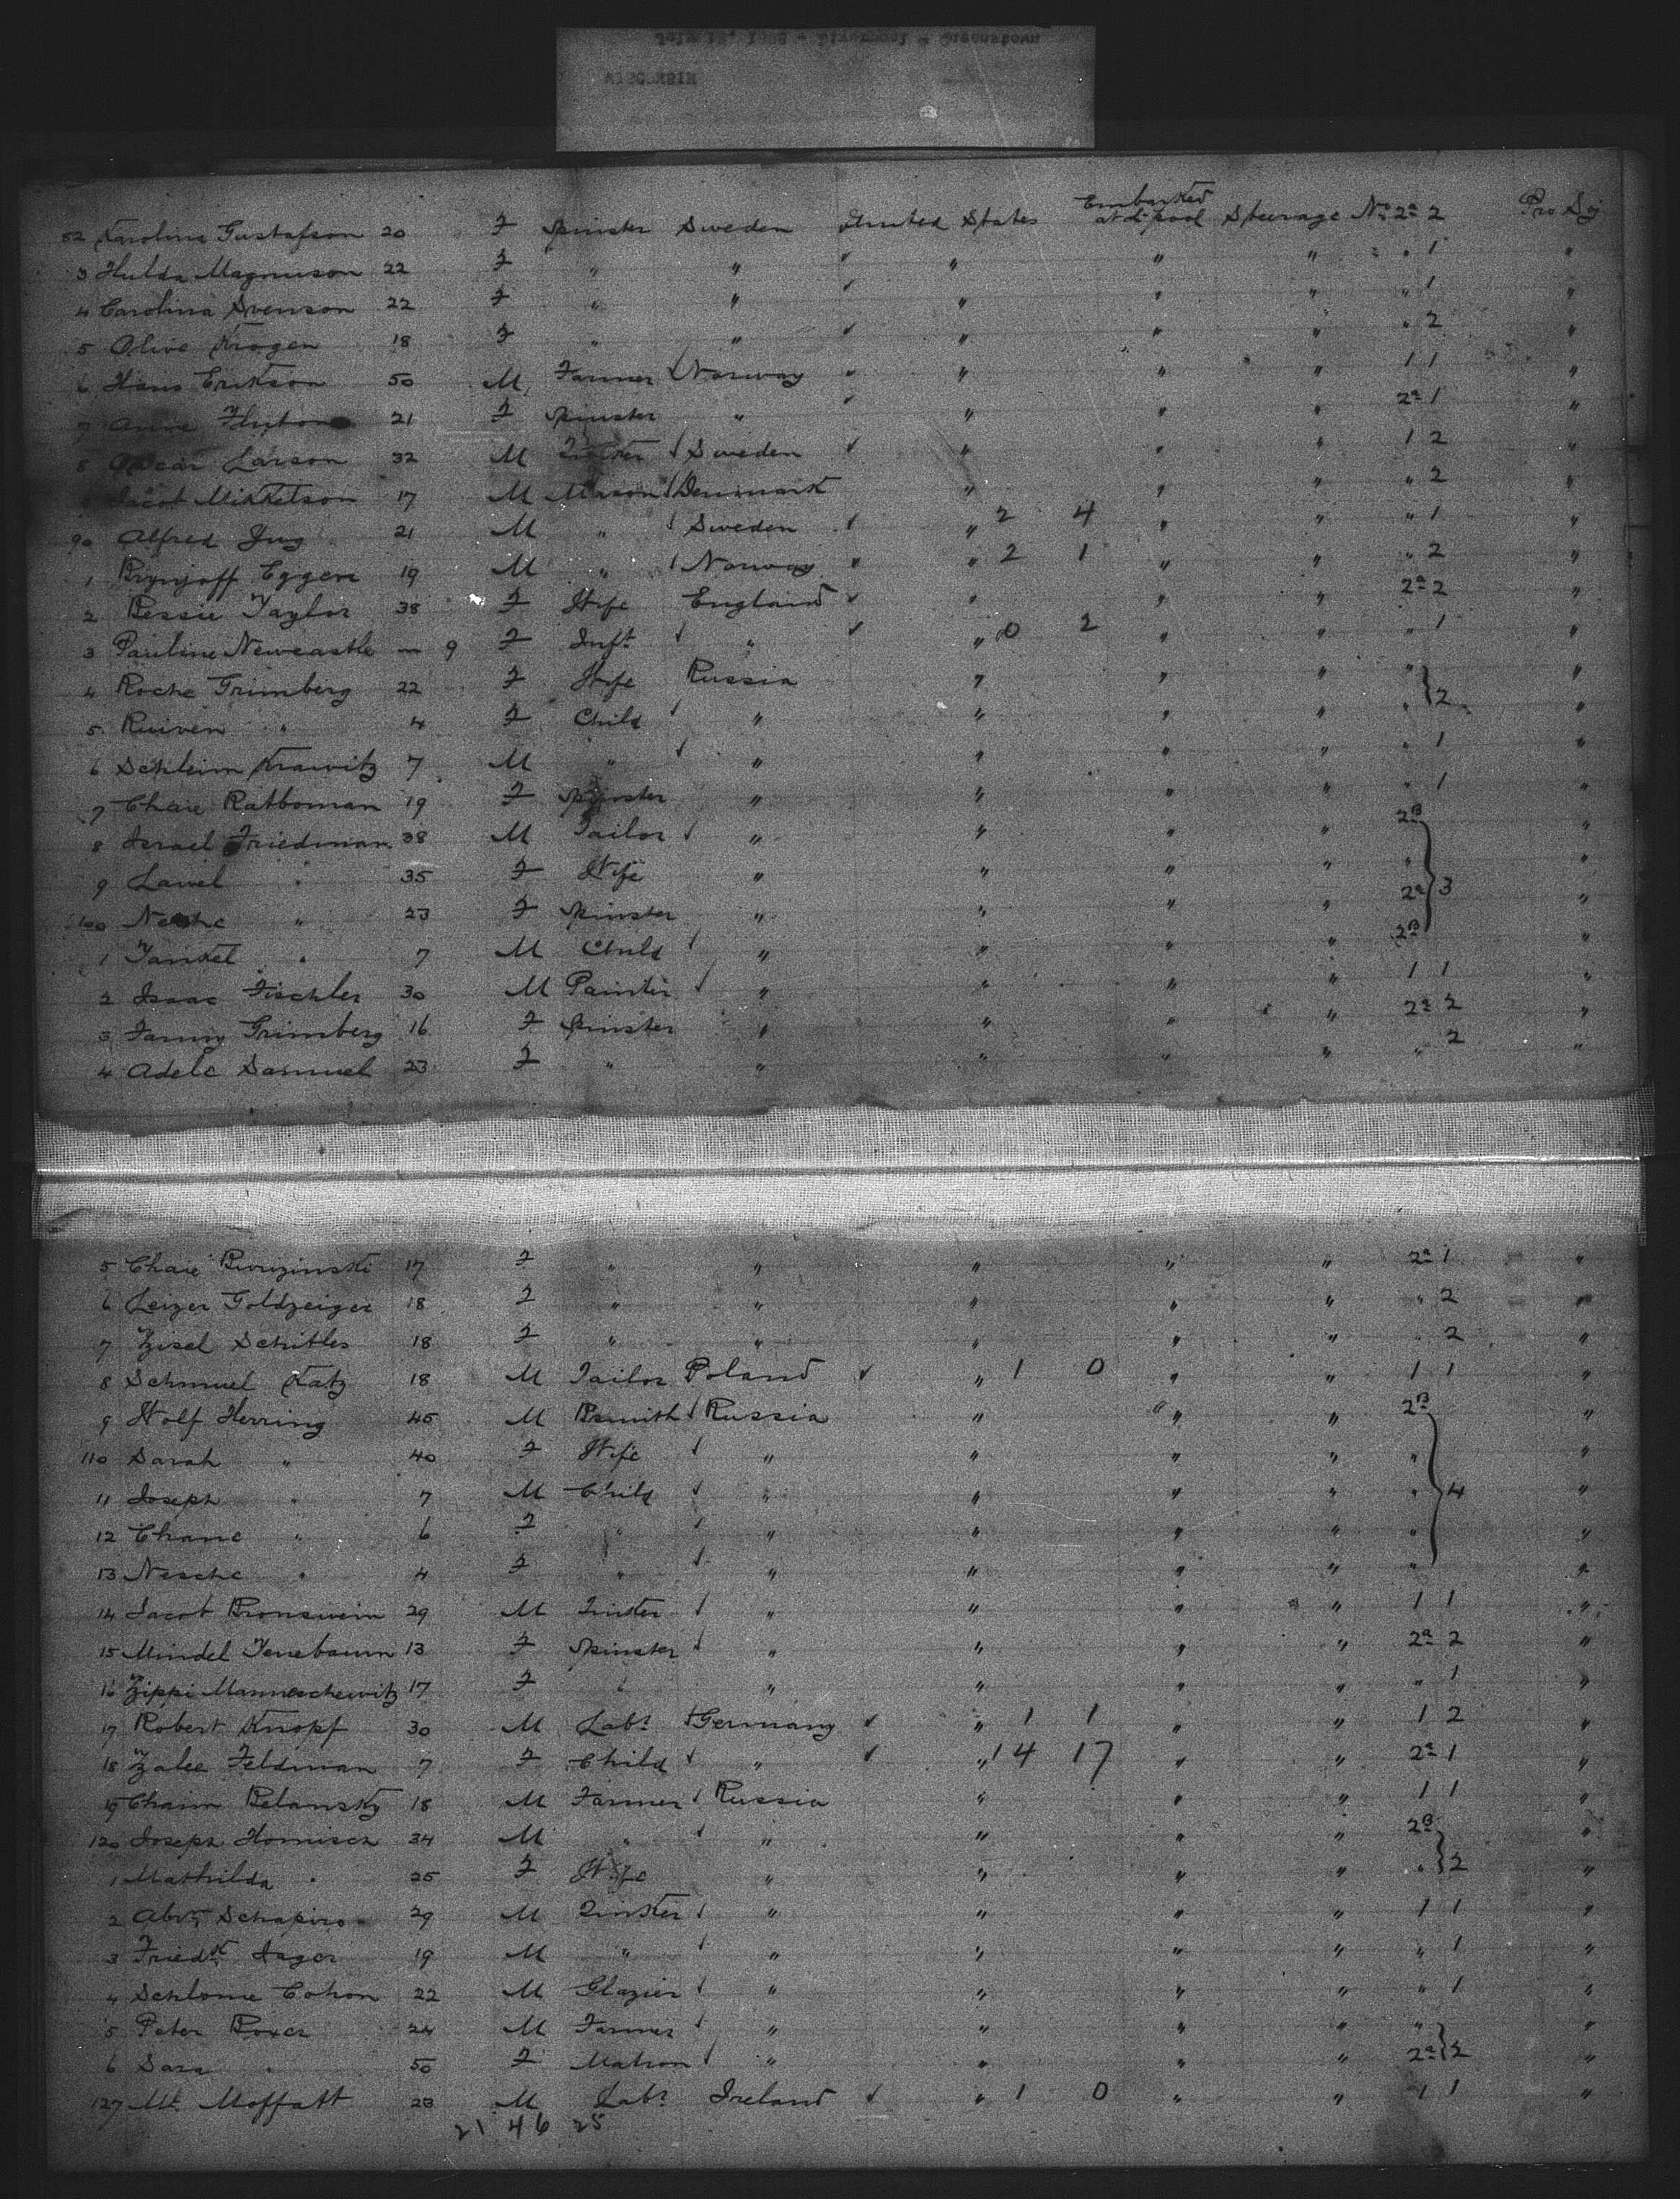 WISCONSIN
82 Karolina Gustafson 20 F Spinster Sweden United States Embarked at L'pool Steerage No 2a 2 Pro Soj
3 Hulda Magnuson 22 F " " " " " " 1 "
4 Carolina Svenson 22 F " " " " " " 1 "
5 Olive Krogen 18 F " " " " " " 2 "
6 Hans Erikson 50 M Farmer Norway " " " 1 1 "
7 21 F Spinster " " " " 2a 1 "
8 Oscar Larson 32 M Sweden " " " 1 2 "
Jacob Mikkelson 17 M Mason Denmark " " " " 2 "
90 Alfred 21 M " Sweden " 2 4 " " " 1 "
1 Eggen 19 M " Norway " 2 1 " " " 2 "
2 Bessie Taylor 38 F Wife England " " " 2a 2 "
3 Pauline Newcastle m 9 F Inft " " 0 2 " " " 1 "
4 Roche Grimberg 22 F Wife Russia " " " " 2 "
5 Ruiven " 4 F Child " " " " " "
6 Schleim Krawitz 7 M " " " " " " 1 "
7 Chaie Ratboman 19 F Spinster " " " " " 1 "
8 Israel Friedman 38 M Tailor " " " " 2B "
9 " 35 F Wife " " " " " 3 "
100 " 23 F Spinster " " " " 2a "
1 Yankel " 7 M Child " " " " 2B "
2 Isaac Fischler 30 M Painter " " " " 1 1 "
3 Fanny Grimberg 16 F Spinster " " " " 2a 2 "
4 Adele Samuel 23 F " " " " " " 2 "
5 Chaie 17 F " " " " " 2a 1 "
6 Leizer Goldzeiger 18 F " " " " " " 2 "
7 Zisel Schitles 18 F " " " " " " 2 "
8 Schmuel Katz 18 M Tailor Poland " 1 0 " " 1 1 "
9 Wolf Herring 45 M Bsmith Russia " " " 2B "
110 Sarah " 40 F Wife " " " " " "
11 Joseph " 7 M Child " " " " " 4 "
12 Chane " 6 F " " " " " " "
13 Nesche " 4 F " " " " " " "
14 Jacob Bronswein 29 M " " " " 1 1 "
15 Mindel Tenebaum 13 F Spinster " " " " 2a 2 "
16 Zippi Manneschewitz 17 F " " " " " " 1 "
17 Robert Knopf 30 M Labr Germany " 1 1 " " 1 2 "
18 Feldman 7 F Child " " 14 17 " " 2a 1 "
19 Chaim Belansky 18 M Farmer Russia " " " 1 1 "
120 Joseph Hornisch 34 M " " " " " 2B "
1 Mathilda " 25 F Wife " " " " " 2 "
2 Abrm Schapiro 29 M " " " " 1 1 "
3 Friedk Jager 19 M " " " " " " 1 "
4 Schlome Cohon 22 M Glazier " " " " " 1 "
5 Peter 24 M Farmer " " " " " "
6 Sara " 50 F Matron " " " " 2a 2 "
127 Moffatt 23 M Labr Ireland " 1 0 " " 1 1 "
21 46 25